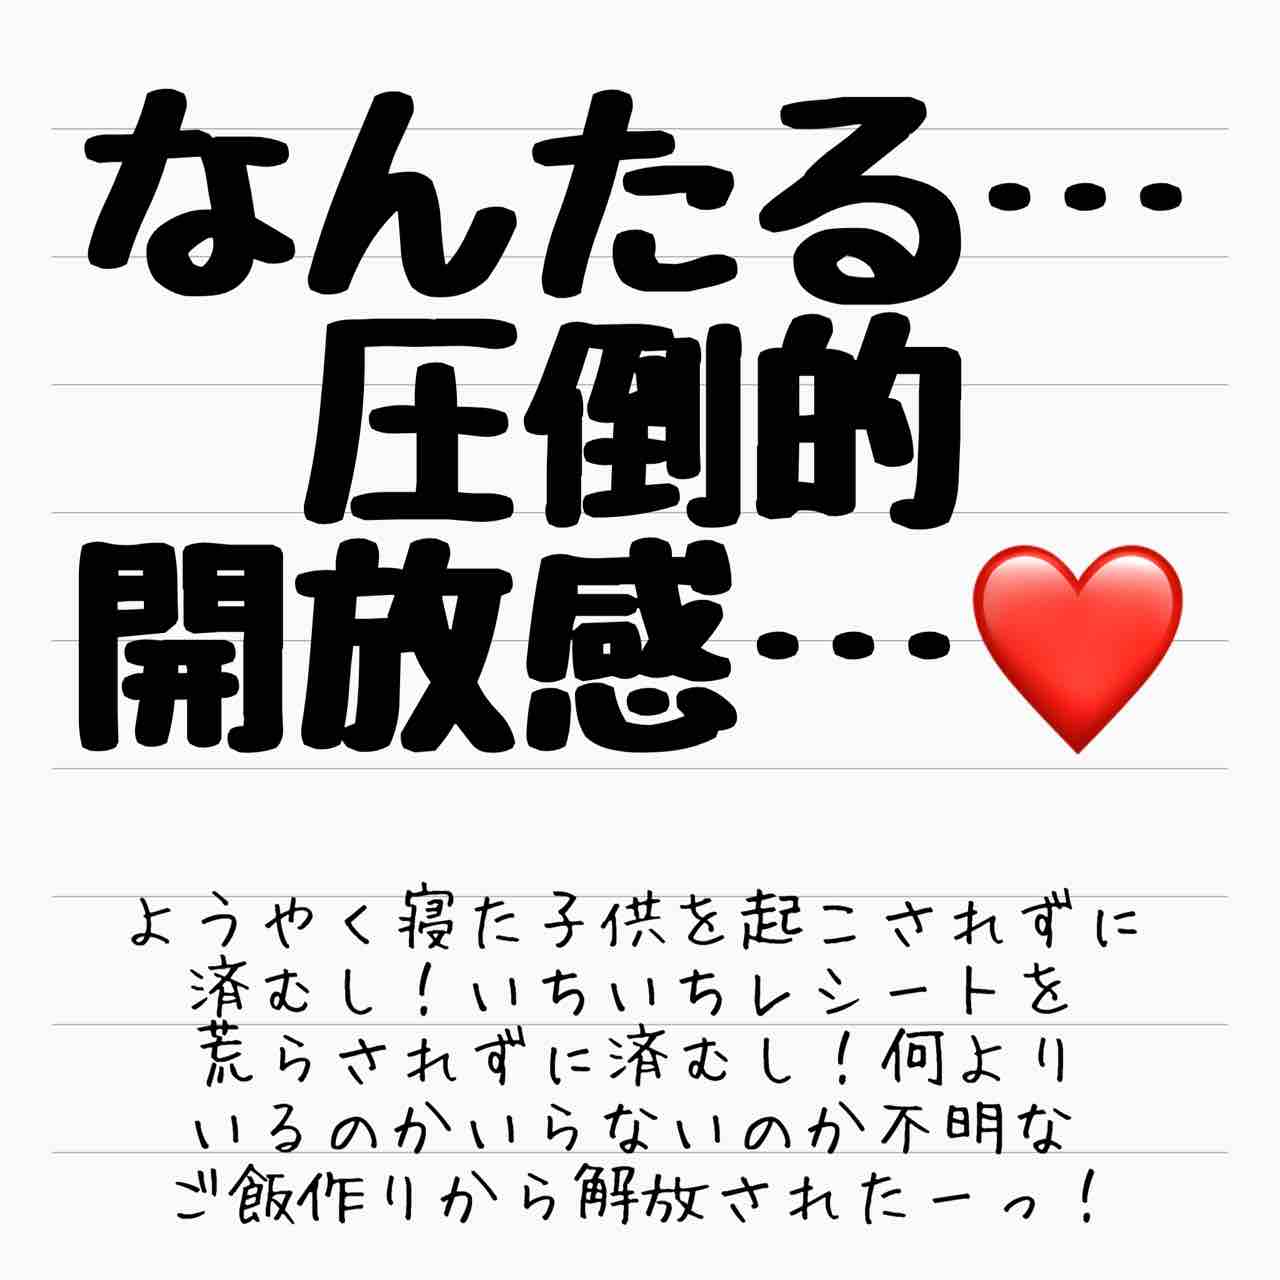 なんたる…
圧倒的
開放感…❤️
ようやく寝た子供を起こされずに
済むし！いちいちレシートを
荒らされずに済むし！何より
いるのかいらないのか不明な
ご飯作りから解放されたーっ！